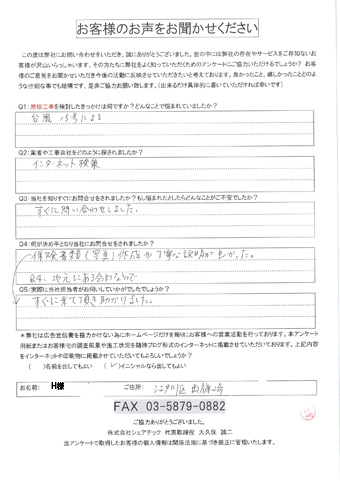 お客様のお声をお聞かせください
この度は弊社にお問い合わせをいただき、誠にありがとうございました。世の中には弊社の存在やサービスをご存知ないお
客様が沢山いらっしゃいます。その方たちに弊社をよく知っていただくためのアンケートにご協力いただけるでしょうか？ お
客様のご意見をお聞かせいただき今後の活動に反映させていただきたいと考えております。良かったこと、嬉しかったことどのよ
うな些細な事でも結構です。是非ご協力お願い致します。（出来るだけ具体的に書いていただければ幸いです）
Q1：屋根工事を検討したきっかけは何ですか？どんなことで悩まれていましたか？
台風15号による
Q2：業者や工事会社をどのように探されましたか？
インターネット検索
Q3：当社を知りすぐにお問合せをされましたか？もし悩まれたとしたらどんなことがご不安でしたか？
すぐに問い合わせしました。
Q4：何が決め手となり当社にお問合せをされましたか？
保険書類（写真）作成や丁寧な説明が良かった。
Q4、地元にある会社なので
Q5：実際に当社担当者がお伺いしていかがでしたでしょうか？
すぐに来て頂き助かりました。
＊弊社は広告宣伝費を極力かけない為にホームページだけを頼りにお客様への営業活動を行っております。本アンケート
用紙またはお客様宅の調査風景や施工状況を随時ブログ形式のインターネットに掲載させていただいております。上記内容
をインターネットや印刷物に掲載させていただいてもよろしいでしょうか？
（　）名前を出してもよい （✓）イニシャルなら出してもよい
お名前： H様 ご住所： 江戸川区西篠崎
FAX 03-5879-0882
ご協力ありがとうございました。
株式会社シェアテック 代表取締役 大久保 誠二
当アンケートで取得したお客様の個人情報は関係法規に基づき厳正に管理いたします。